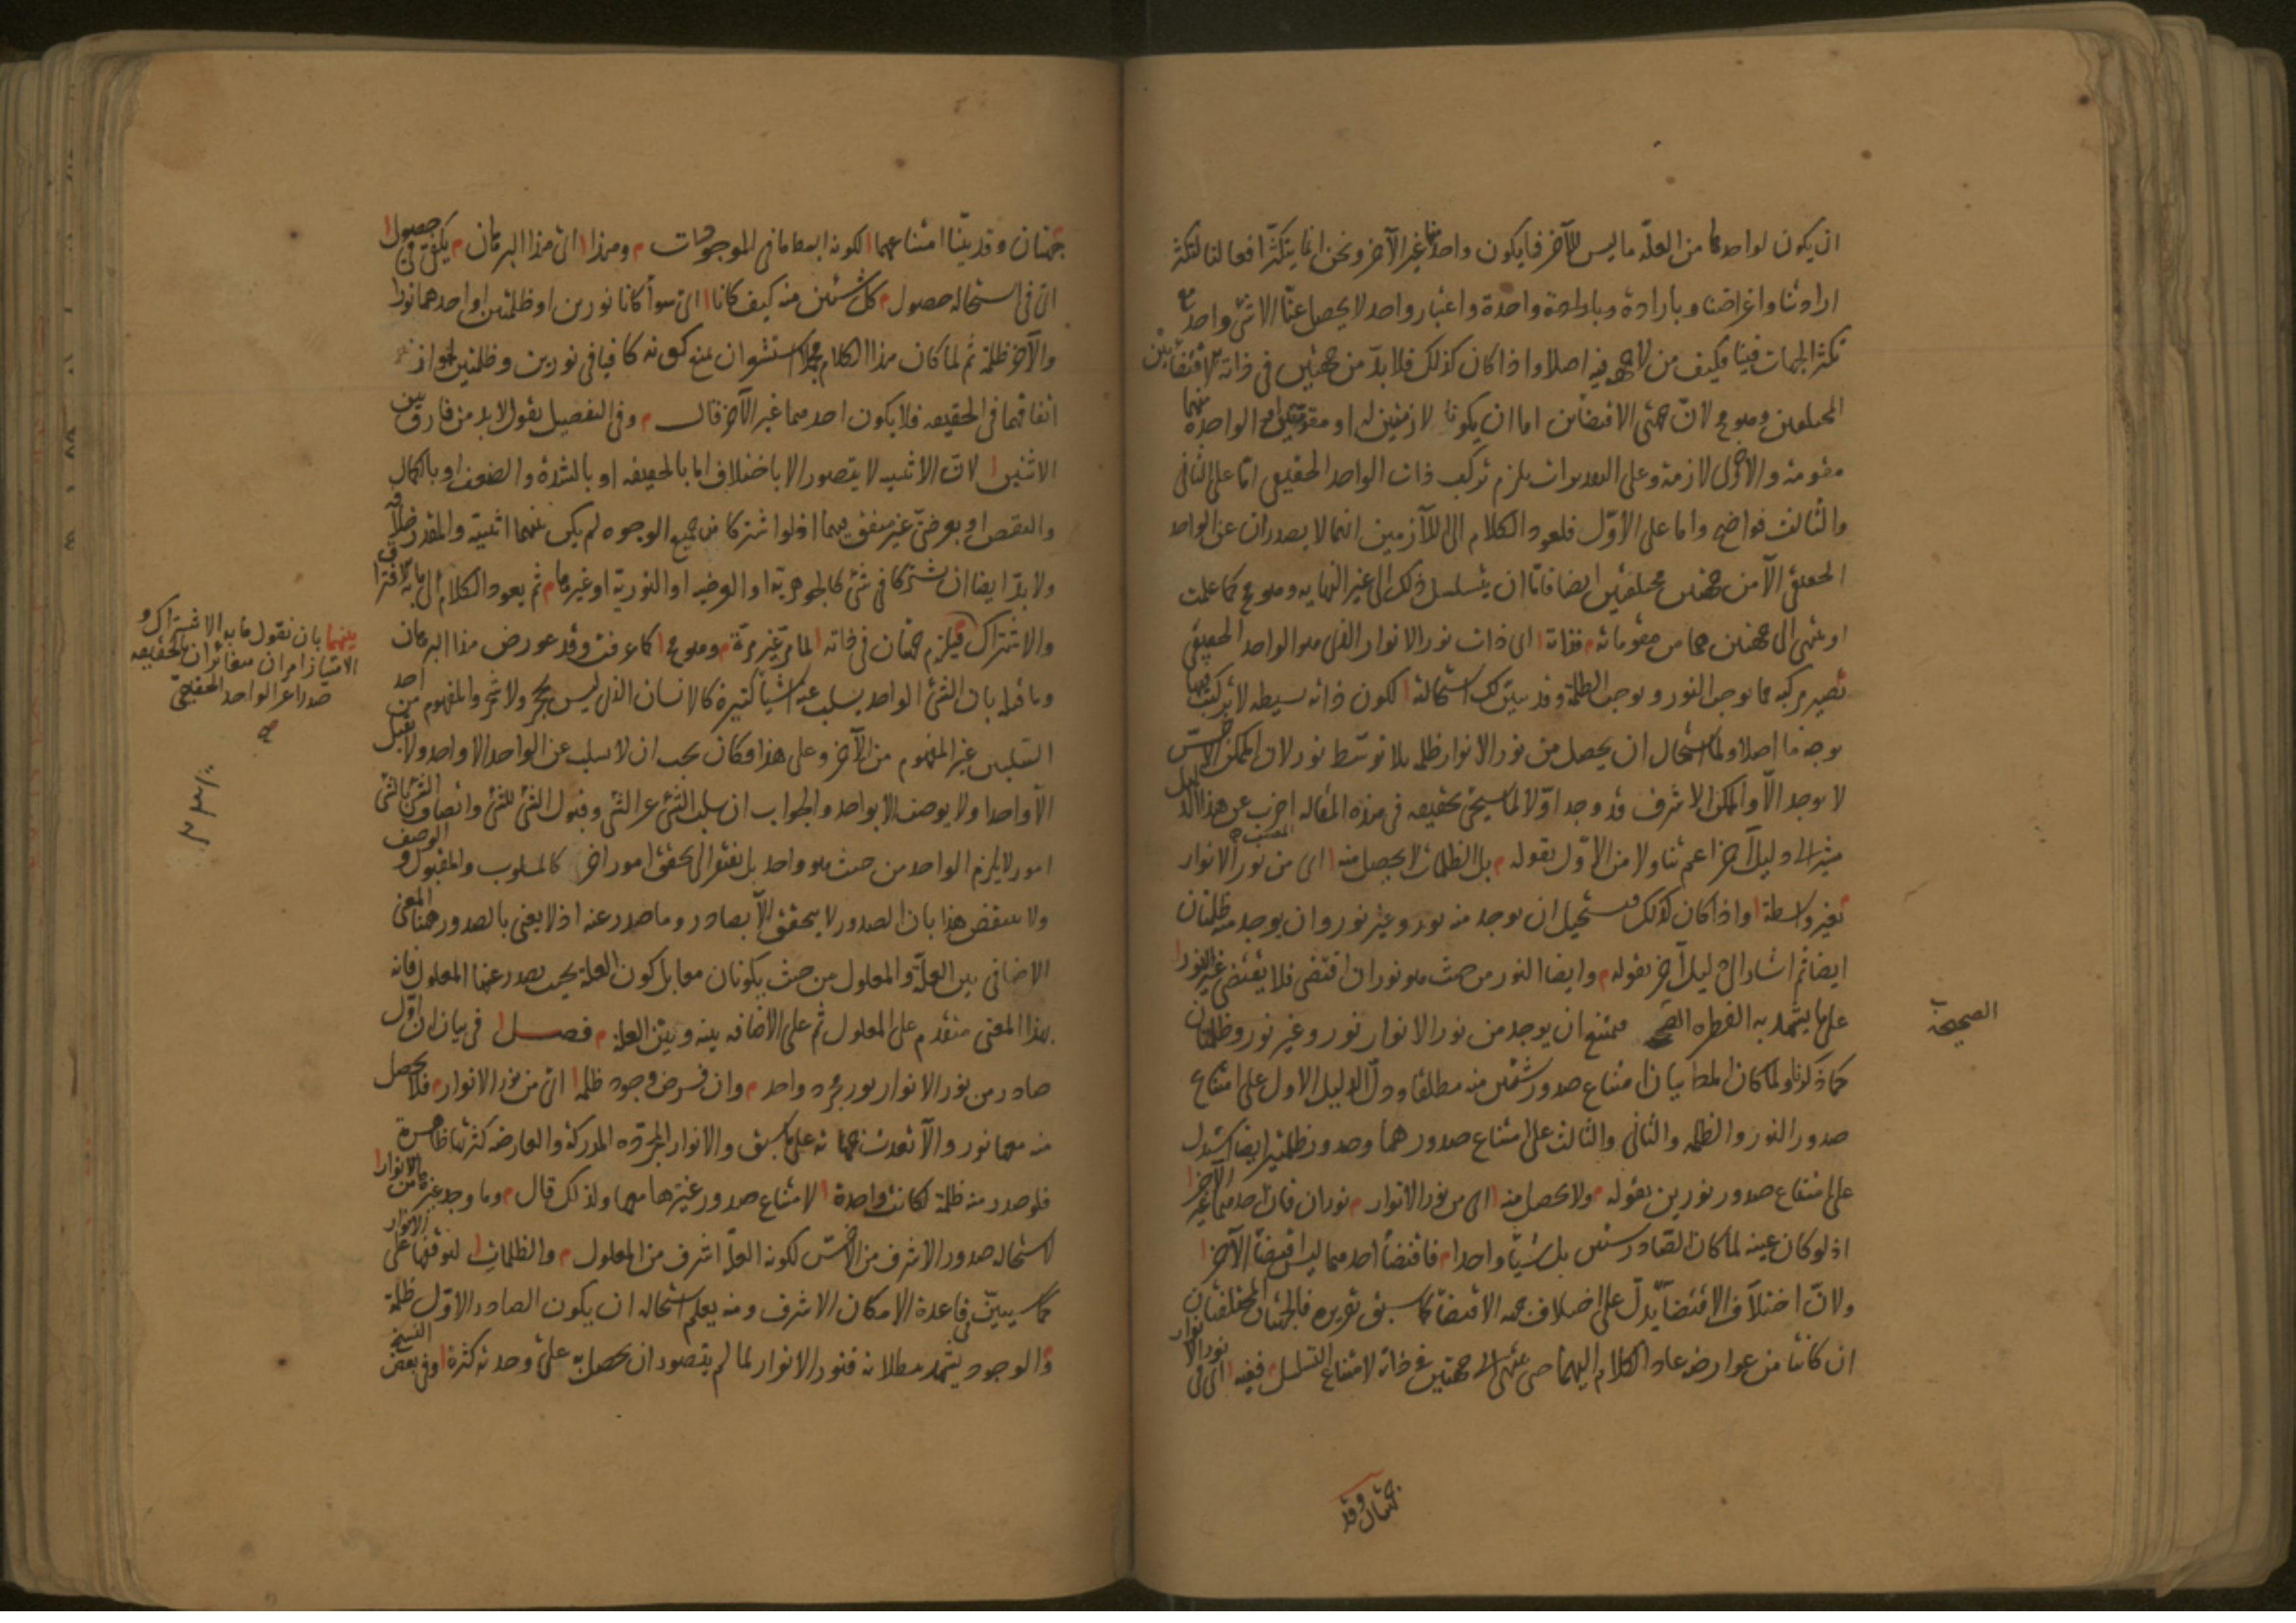 ان يكون لواحدهما من العلّة ما ليس للآخر فما يكون واحد منهما غير الآخر ونحن انما يتكثر افعالنا لتكثر
ارادتنا واغراضنا وبارادة واحدة واعتبار واحد لا يحصل عنّا الا شئ واحد مع
تكثر الجهات فينا فكيف من لا جهة فيه اصلا واذا كان كذلك فلا بدّ من جهتين في ذاته لاقتضائين
المختلفين وهو مح لانّ جهتى الاقتضائين اما ان يكونا لازمتين له او مقومتين له او الواحدة منهما
مقومة والاخرى لازمة وعلى التقديرات يلزم تركب ذات الواحد الحقيقى امّا على الثانى
والثالث فواضح واما على الاوّل فلعود الكلام الى اللازمين انهما لا يصدران عن الواحد
الحقيقى الّا من جهتين مختلفتين ايضا فامّا ان يتسلسل ذلك الى غير النهايه وهو مح كما علمت
او ينتهى الى جهتين هما من مقوماته فذاته اى ذات نور الانوار الذى هو الواحد الحقيقى
تصير مركبه مما يوجب النور ويوجب الظلمة وقد تبيّن لك استحالته لكون ذاته بسيطه لا تركب فيها
بوجه ما اصلا ولما استحال ان يحصل من نور الانوار ظلمه بلا توسّط نور لان الممكن الاخسّ
لا يوجد الّا والممكن الاشرف قد وجد اوّلا لما سيجئ تحقيقه فى هذه المقاله اضرب عن هذا الدليل
المصنف
مشيرا الى دليل آخر اعم تناولا من الاوّل بقوله بل الظلمات لا يحصل منه اى من نور الانوار
بغير واسطة واذا كان كذلك فيستحيل ان يوجد منه نور وغير نور وان يوجد منه ظلمتان
ايضا ثم اشار الى دليل آخر بقوله وايضا النور من حيث هو نور ان اقتضى فلا يقتضى غير النور
على ما يشهد به الفطره فيمتنع ان يوجد من نور الانوار نور وغير نور وظلمتان
الصحيحة
كما ذكرنا ولما كان المط بيان امتناع صدور شيئين منه مطلقا ودلّ الدليل الاول على امتناع
صدور النور والظلمه والثانى والثالث على امتناع صدورهما وصدور ظلمتين ايضا استدل
على امتناع صدور نورين بقوله ولا يحصل منه اى من نور الانوار نوران فان احدهما غير الآخر
اذ لو كان عينه لما كان الصّادر شيئين بل شيئا واحدا فاقتضاء احدهما ليس اقتضاء الآخر
ولانّ اختلاف الاقتضاء يدلّ على اختلاف جهة الاقتضاء كما سبق تقريره فالجهتان المختلفتان
ان كانتا من عوارضه عاد الكلام اليهما حتى ينتهى الى جهتين فى ذاته لامتناع التسلسل ففيه اى فى نور الانوار
جهتان وقد
جهتان وقد بيّنا امتناعهما لكونه ابسط ما فى الموجودات وهذا اى هذا البرهان يكفى فى حصول
اى فى استحاله حصول كل شيئين منه كيف كانا اى سواء كانا نورين او ظلمتين او احدهما نورا
والآخر ظلمة ثم لما كان هذا الكلام مجملا استشعر ان يمنع كونه كافيا فى نورين وظلمتين لجواز
اتفاقهما فى الحقيقه فلا يكون احدهما غير الآخر قال وفى التفصيل نقول لا بد من فارق بين
الاثنين لان الاثنينيه لا يتصور الا باختلاف اما بالحقيقه او بالشدة والضعف او بالكمال
والنقص او بعرضىّ غير متفق فيهما اذ لو اشتركا من جميع الوجوه لم يكن بينهما اثنينية والمقدر خلافه
ولا بدّ ايضا ان يشتركا فى شئ كالجوهرية او العرضيه او النوريّة او غيرها ثم يعود الكلام الى ما به الافتراق
والاشتراك فيلزم جهتان فى ذاته لما مرّ غير مرّة وهو مح كما عرفت وقد عورض هذا البرهان
بينهما بان نقول ما به الاشتراك و
الامتياز امران متغائران بالحقيقه
صدرا عن الواحد الحقيقىّ
وما قيل بان الشئ الواحد يسلب عنه اشياء كثيرة كالانسان الذى ليس بحجر ولا شجر والمفهوم من احد
السلبين غير المفهوم من الآخر وعلى هذا فكان يجب ان لا يسلب عن الواحد الا واحد ولا يقبل
الّا واحدا ولا يوصف الا بواحد والجواب ان سلب الشئ عن الشئ وقبول الشئ للشئ واتصاف الشئ بالشئ
امور لا يلزم الواحد من حيث هو واحد بل يفتقر الى تحقق امور اخر كالمسلوب والمقبول و الوصف
ولا ينتقض هذا بان الصدور لا يتحقق الّا بصادر وما صدر عنه اذ لا يعنى بالصدور ههنا المعنى
الاضافى بين العلّة والمعلول من حيث يكونان معا بل كون العلة بحيث يصدر عنها المعلول فانه
بهذا المعنى متقدم على المعلول ثم على الاضافه بينه وبين العلة فصل فى بيان ان اوّل
صادر من نور الانوار نور مجرد واحد وان فرض وجود ظلمة اى من نور الانوار فلا يحصل
منه معها نور والّا تعددت جهاته على ما سبق والانوار المجرّده المدركة والعارضه كثرتها ظاهرة
فلو صدر منه ظلمة لكانت واحدة لامتناع صدور غيرها معها ولذلك قال وما وجد غيرها من الانوار
لاستحاله صدور الاشرف من الاخسّ لكون العلّة اشرف من المعلول والظلمات لتوقفها على الانوار
كما سيبيّن فى قاعدة الامكان الاشرف ومنه يعلم استحاله ان يكون الصادر الاوّل ظلمة
والوجود يشهد ببطلانه فنور الانوار لما لم يتصور ان يحصل به على وحدته كثرة وفى بعض النسخ